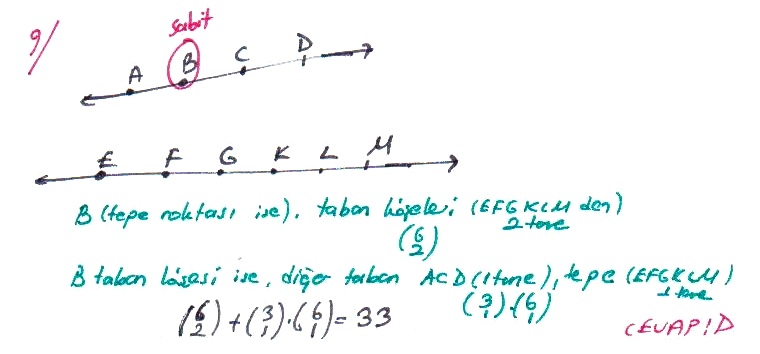 9/
sabit
A B C D
E F G K L M
B (tepe noktası ise), taban köşeleri (EFGKLM den)
2 tane
(6 2)
B taban köşesi ise, diğer taban ACD (1 tane), tepe (EFGKLM)
1 tane
(3 1).(6 1)
(6 2) + (3 1).(6 1) = 33
CEVAP!D